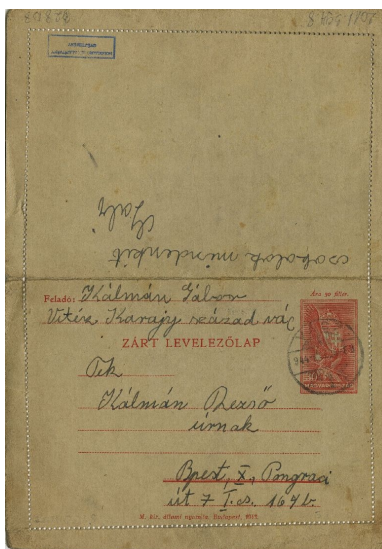 csókolok mindenkit
Gabi
Feladó: Kálmán Gábor
Vitéz Karajy század Vác
Ára 30 fillér.
ZÁRT LEVELEZŐLAP
MAGYARORSZÁG
Tek
Kálmán Rezső
úrnak
Bpest, X., Pongrác
út 7 I. cs. 164b.
M. kir. állami nyomda, Budapest.